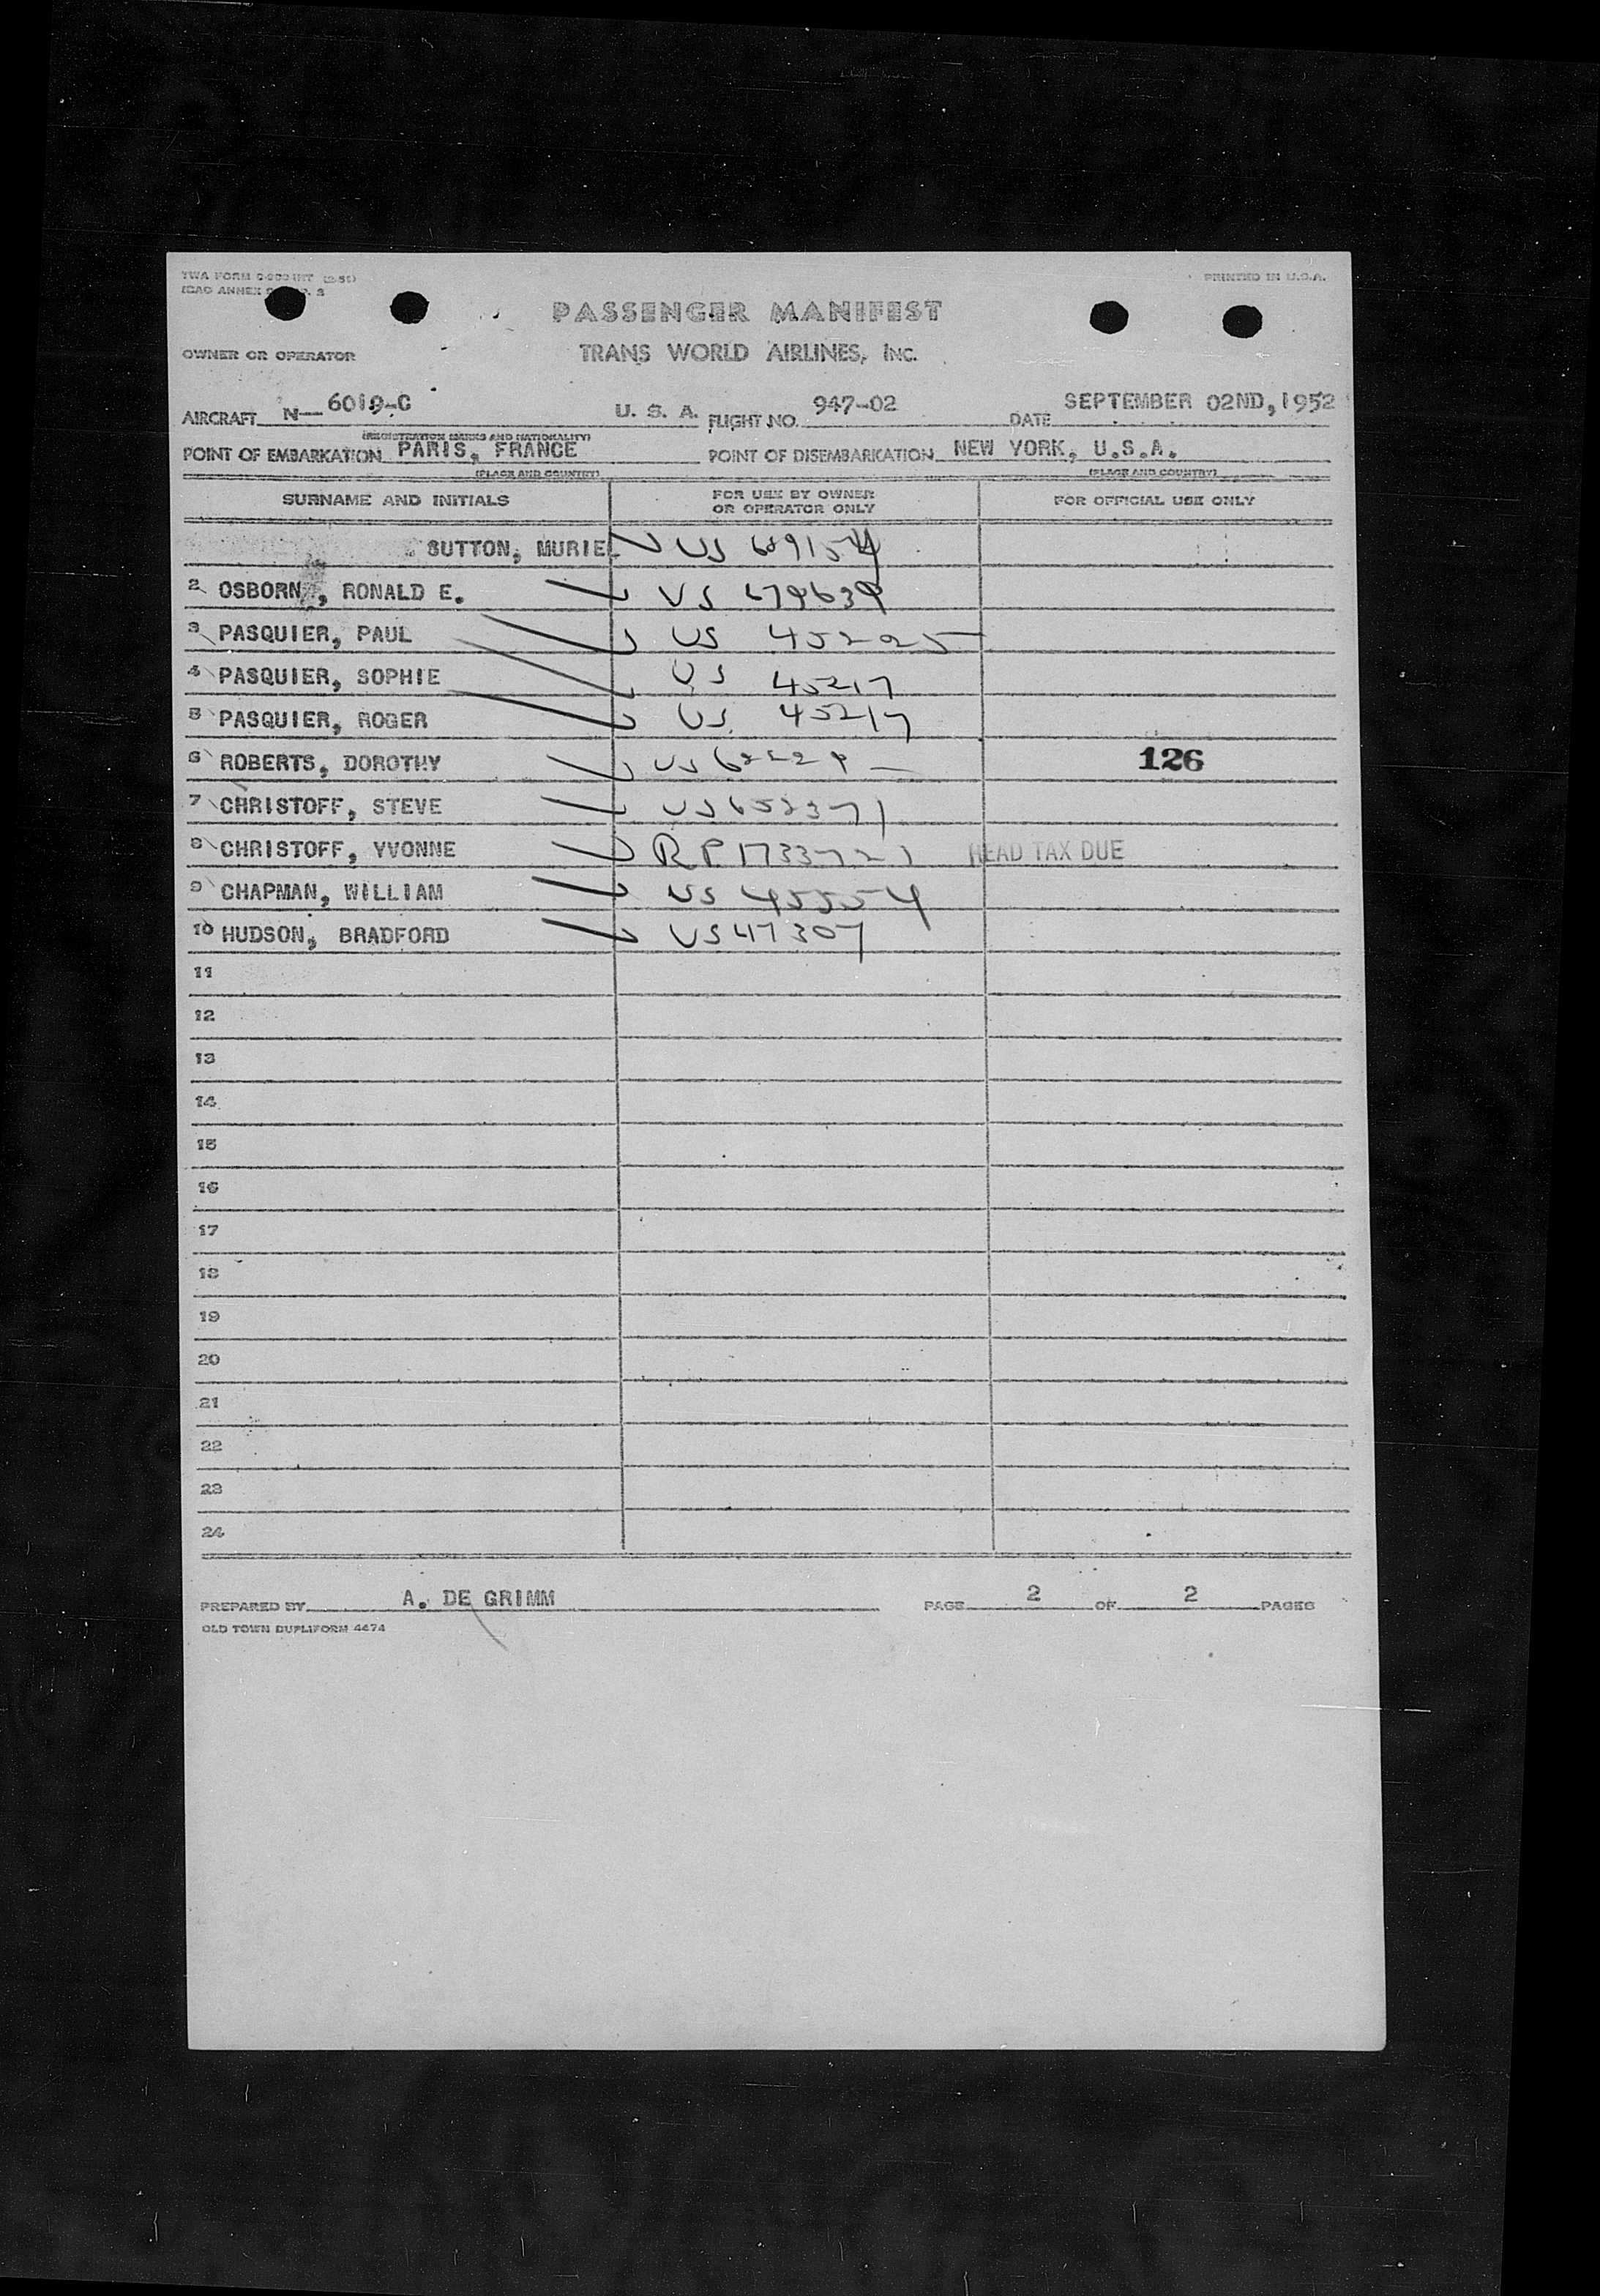 TWA FORM
ICAO ANNEX
PRINTED IN U.S.A.
PASSENGER MANIFEST
OWNER OR OPERATOR TRANS WORLD AIRLINES, INC.
AIRCRAFT N—6019-C U. S. A. FLIGHT NO. 947-02 DATE SEPTEMBER 02ND, 1952
(REGISTRATION MARKS AND NATIONALITY)
POINT OF EMBARKATION PARIS, FRANCE POINT OF DISEMBARKATION NEW YORK, U.S.A.
(PLACE AND COUNTRY) (PLACE AND COUNTRY)
SURNAME AND INITIALS FOR USE BY OWNER OR OPERATOR ONLY FOR OFFICIAL USE ONLY
SUTTON, MURIEL US 689154
2 OSBORN, RONALD E. US 679639
3 PASQUIER, PAUL US 45225
4 PASQUIER, SOPHIE US 45217
5 PASQUIER, ROGER US 45217
6 ROBERTS, DOROTHY US 126
7 CHRISTOFF, STEVE US 652371
8 CHRISTOFF, YVONNE RP 1733721 HEAD TAX DUE
9 CHAPMAN, WILLIAM US 45554
10 HUDSON, BRADFORD US 47307
11
12
13
14
15
16
17
18
19
20
21
22
23
24
PREPARED BY A. DE GRIMM PAGE 2 OF 2 PAGES
OLD TOWN DUPLIFORM 4474